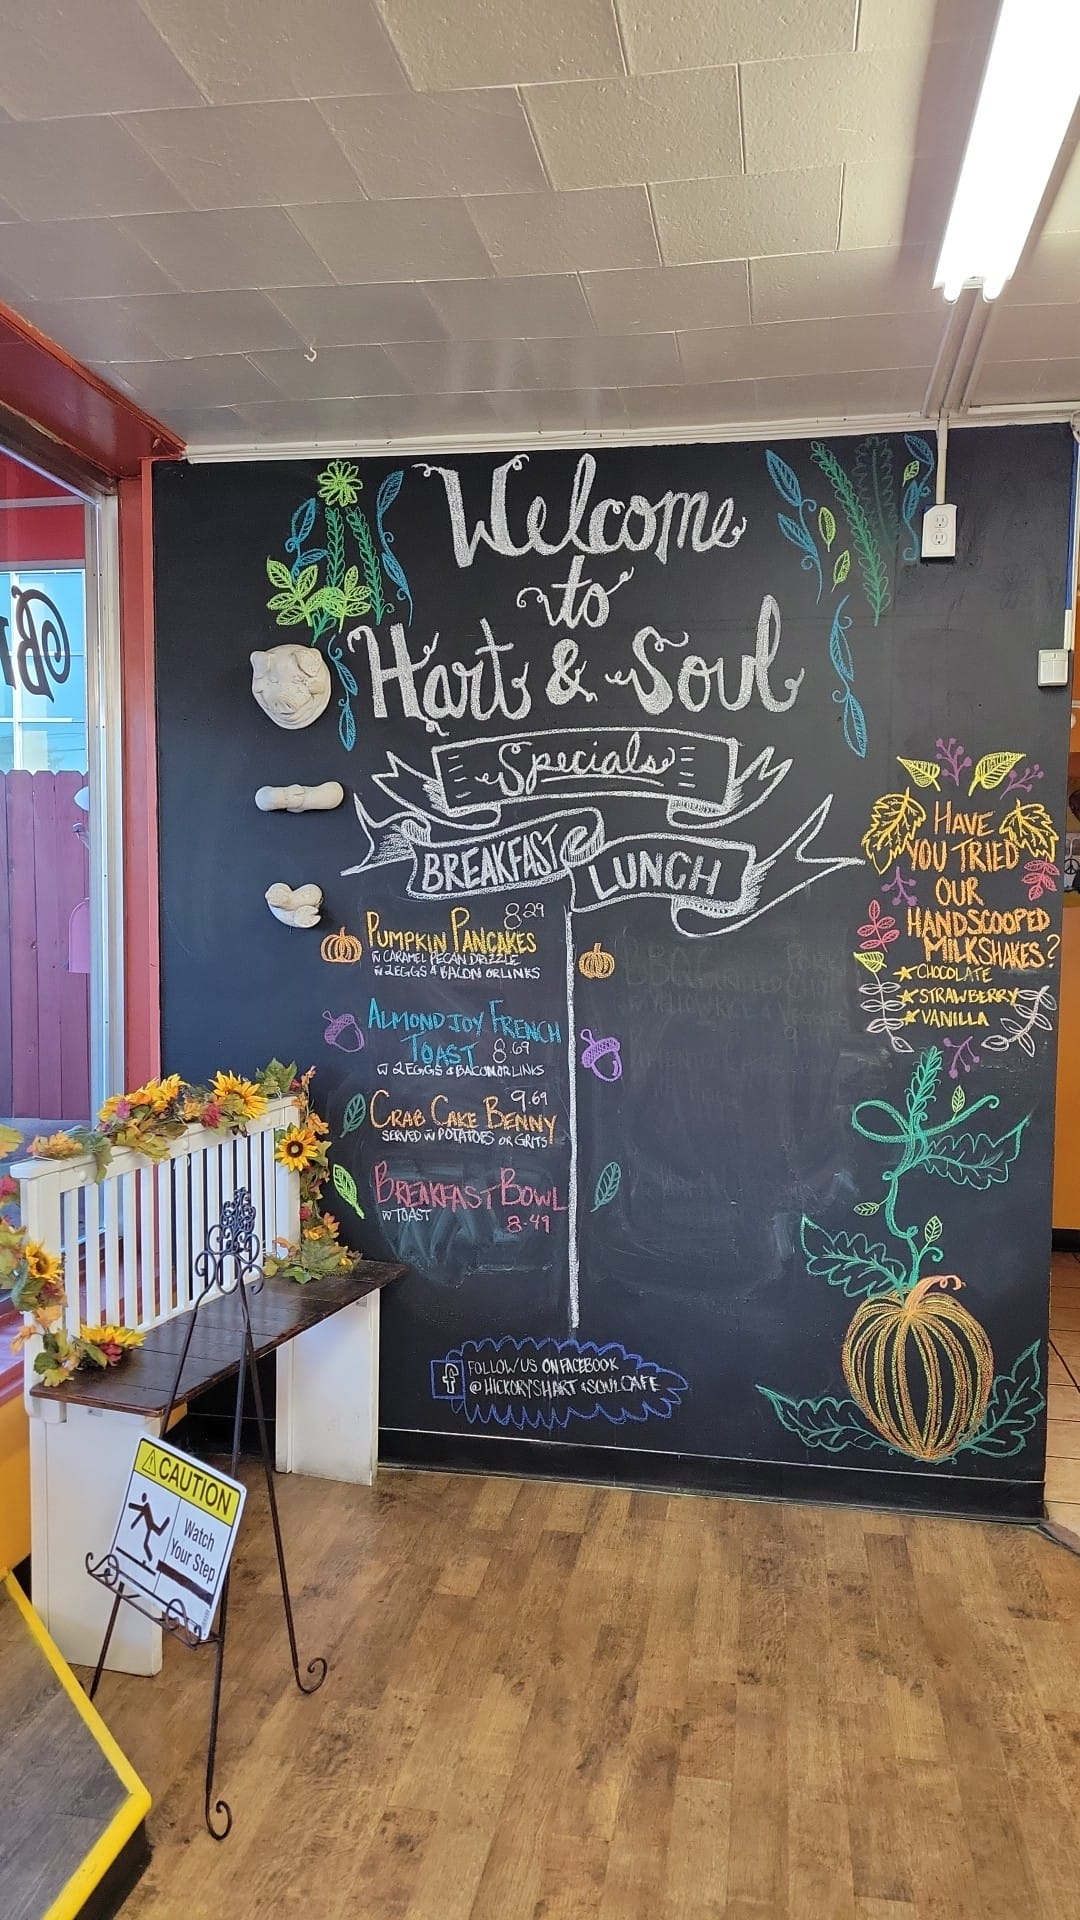 Welcome
to
Hart & Soul
Specials
BREAKFAST
LUNCH
8.29
PUMPKIN PANCAKES
W CARAMEL PECAN DRIZZLE
W 2 EGGS & BACON OR LINKS
ALMOND JOY FRENCH
TOAST 8.69
W 2 EGGS & BACON OR LINKS
9.69
CRAB CAKE BENNY
SERVED W POTATOES OR GRITS
BREAKFAST BOWL
W TOAST
8.49
HAVE
YOU TRIED
OUR
HANDSCOOPED
MILKSHAKES?
CHOCOLATE
STRAWBERRY
VANILLA
f
FOLLOW US ON FACEBOOK
@HICKORYSHART&SOULCAFE
CAUTION
Watch
Your Step